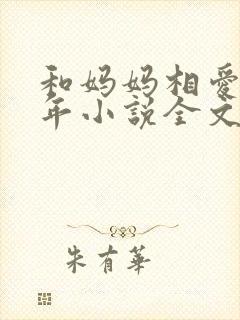 和妈妈相爱
年小说全文
朱有华